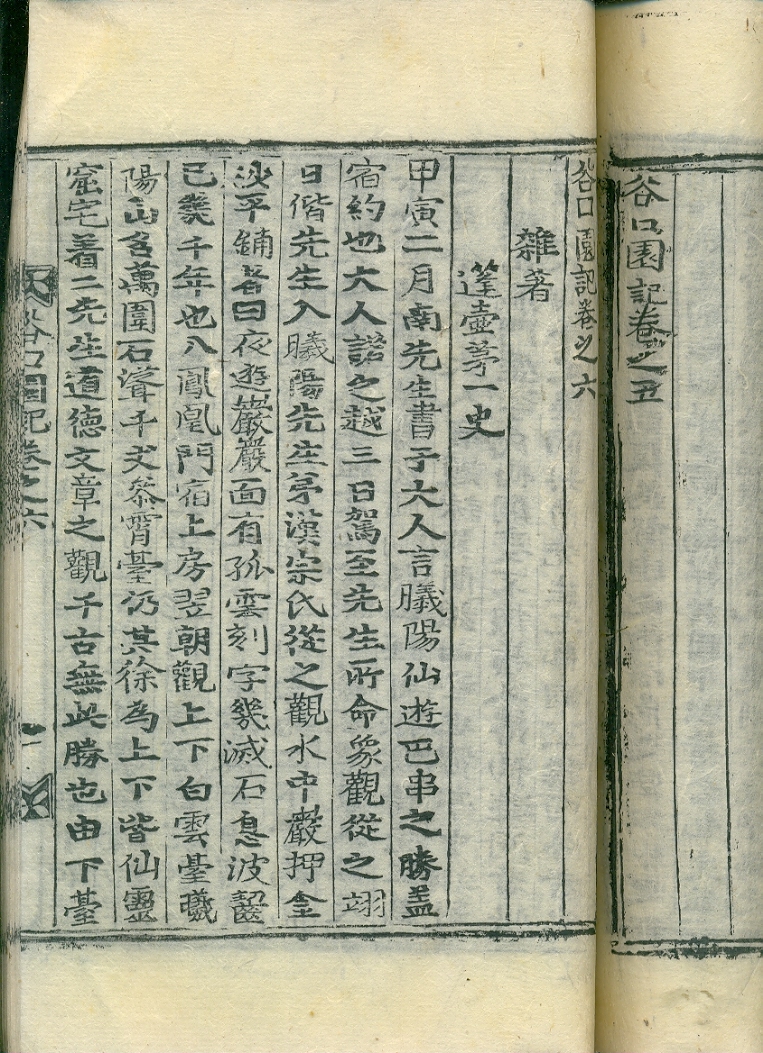 谷口園記卷之五
谷口園記卷之六
雜著
蓬壺茅一史
甲寅二月南先生書于大人言曦陽仙遊巴串之勝盖
宿約也大人諾之越三日駕至先生所命象觀從之翊
日偕先生入曦陽先生弟漢宗氏從之觀水中巖押金
沙平鋪名曰夜遊巖巖面有孤雲刻字幾滅石息波齧
已幾千年也入鳳凰門宿上房翌朝觀上下白雲臺曦
陽山名萬圍石聳千丈叅霄臺仍其徐為上下皆仙靈
窟宅着二先生道德文章之觀千古無此勝也由下臺
谷口園記卷之六
一